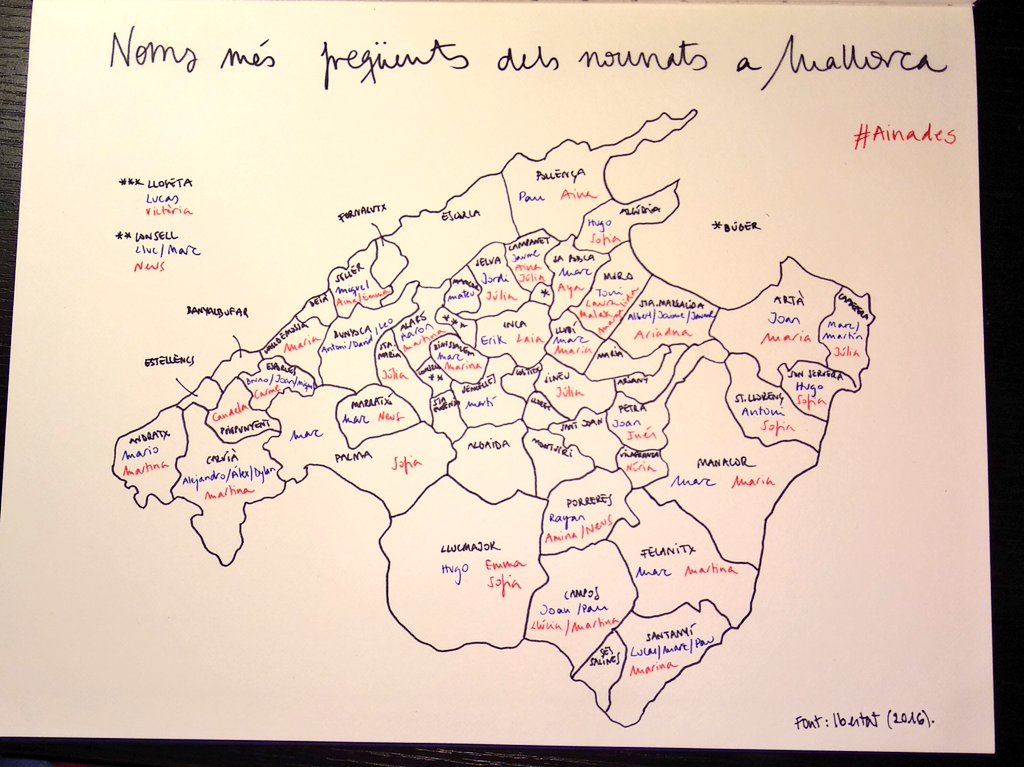 Noms més freqüents dels nounats a Mallorca
#Ainades
*** LLOSETA
Lucas
Victòria
** CONSELL
Lluc/Marc
Neus
*BÚGER
POLLENÇA
Pau Aina
FORNALUTX
ESCORCA
ALCÚDIA
Hugo
Sofia
SÓLLER
Miquel
Aina/Emma
SELVA
Jordi
Júlia
CAMPANET
Jaume
Aina
Júlia
SA POBLA
Marc
Aya
MURO
Toni
MANCOR
Mateu
*
***
DEIÀ
BANYALBUFAR
VALLDEMOSSA
Maria
BUNYOLA
Leo
Antoni/David
ALARÓ
Aaron
Martina
STA MARIA
Júlia
BINISSALEM
Marc
Marina
CONSELL
**
INCA
Erik Laia
LLUBÍ
Marc
Maria
STA. MARGALIDA
Albert/Jaume/Javier
Ariadna
MARIA
ARTÀ
Joan
Maria
CAPDEPERA
Marc/
Martín
Júlia
SON SERVERA
Hugo
Sofia
ST. LLORENÇ
Antoni
Sofia
ESTELLENCS
ESPORLES
Bruno/Joan/Miquel
Carme
Candela
PUIGPUNYENT
MARRATXÍ
Marc Neus
STA EUGÈNIA
SENCELLES
Martí
COSTITX
SINEU
Júlia
LLORET
ARIANY
SANT JOAN
PETRA
Joan
Inés
VILAFRANCA
Núria
MONTUÏRI
ANDRATX
Mario
Martina
CALVIÀ
Alejandro/Álex/Dylan
Martina
Marc
PALMA
Sofia
ALGAIDA
MANACOR
Marc Maria
PORRERES
Rayan
Amina/Neus
LLUCMAJOR
Hugo Emma
Sofia
FELANITX
Marc Martina
CAMPOS
Joan/Pau
Llúcia/Martina
SES SALINES
SANTANYÍ
Lucas/Marc/Pau
Marina
Font: Ibestat (2016).